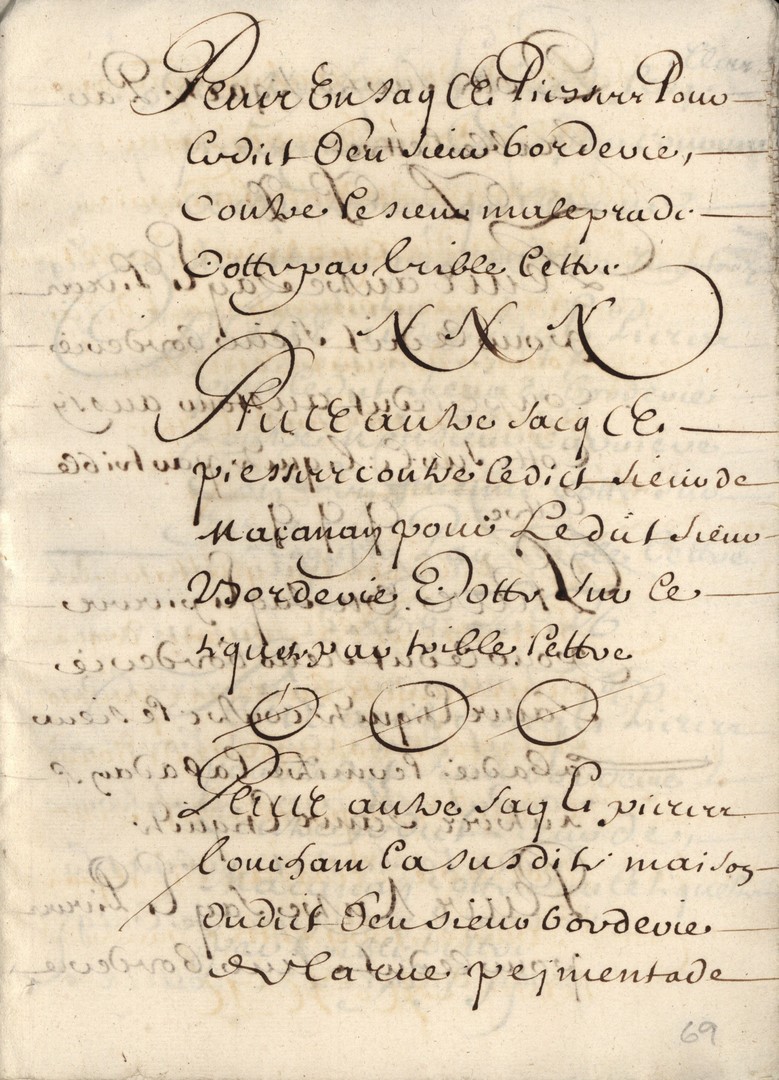 Plus un sacq & piesses pour
ledict feu sieur bordevie,
contre le sieur maleprade
Cotte par trible lettre
N N N
Plus autre sacq &
piesses contre ledict sieur de
Macanan pour Ledict sieur
Bordevie Cotte sur le
tiquet par trible lettre
O O O
Plus autre sacq & pieces
touchant la susdite maison
dudict feu sieur bordevie
de la rue peimentade
69